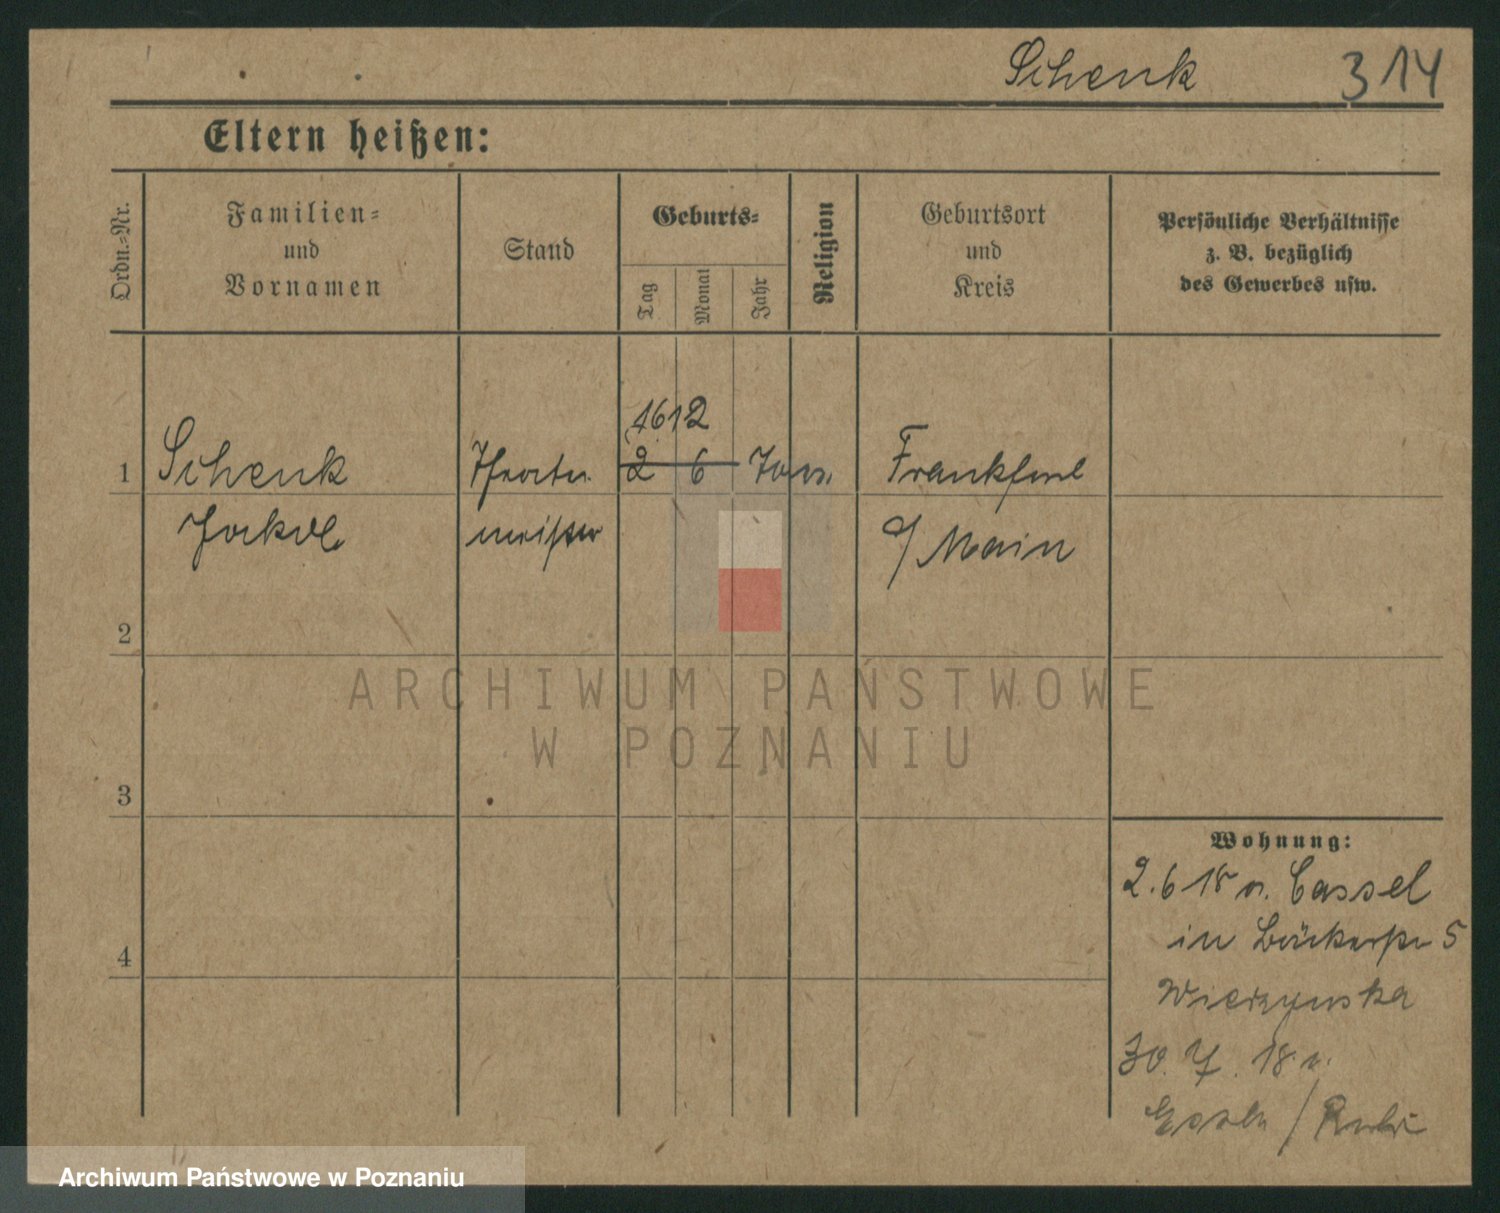 Schenk 314
Eltern heißen:
Ordn.-Nr.
Familien-
und
Vornamen
Stand
Geburts-
Tag
Monat
Jahr
Religion
Geburtsort
und
Kreis
Persönliche Verhältnisse
z. B. bezüglich
des Gewerbes usw.
1612
1 Schenk 2 6 Frankfurt
Jakob meister a/ Main
2
3
4
Wohnung:
2. 6 18 v. Cassel
in Bäckerstr 5
Wierzynska
30. 7. 18 n.
Essen / Ruhr
ARCHIWUM PAŃSTWOWE
W POZNANIU
Archiwum Państwowe w Poznaniu